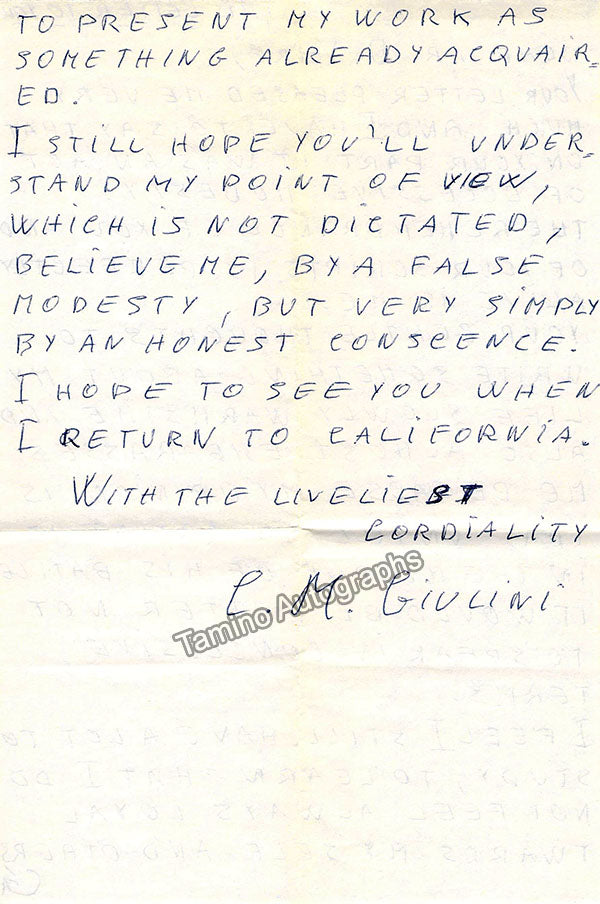 TO PRESENT MY WORK AS
SOMETHING ALREADY ACQUAIR=
ED.
I STILL HOPE YOU'LL UNDER=
STAND MY POINT OF VIEW,
WHICH IS NOT DICTATED,
BELIEVE ME, BY A FALSE
MODESTY, BUT VERY SIMPLY
BY AN HONEST CONSCENCE.
I HOPE TO SEE YOU WHEN
I RETURN TO CALIFORNIA.
WITH THE LIVELIEST
CORDIALITY
C. M. GIULINI
Tamino Autographs